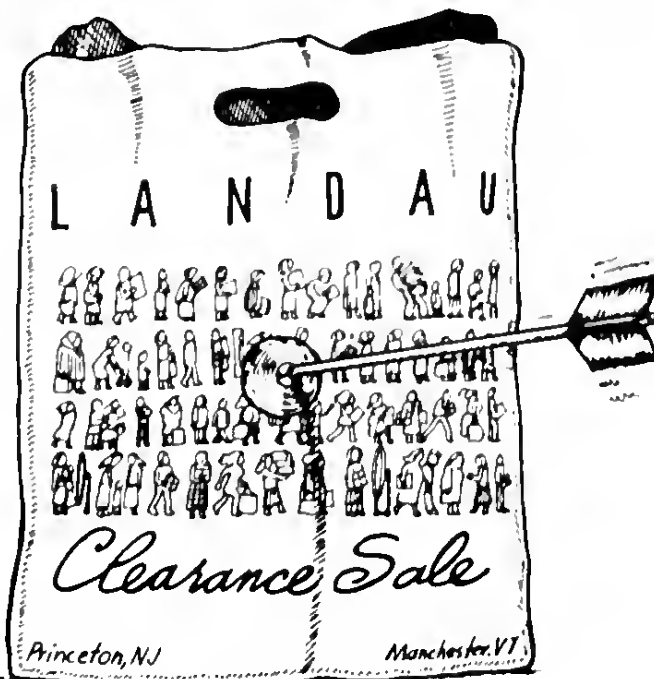 LANDAU
Clearance Sale
Princeton, NJ Manchester, VT